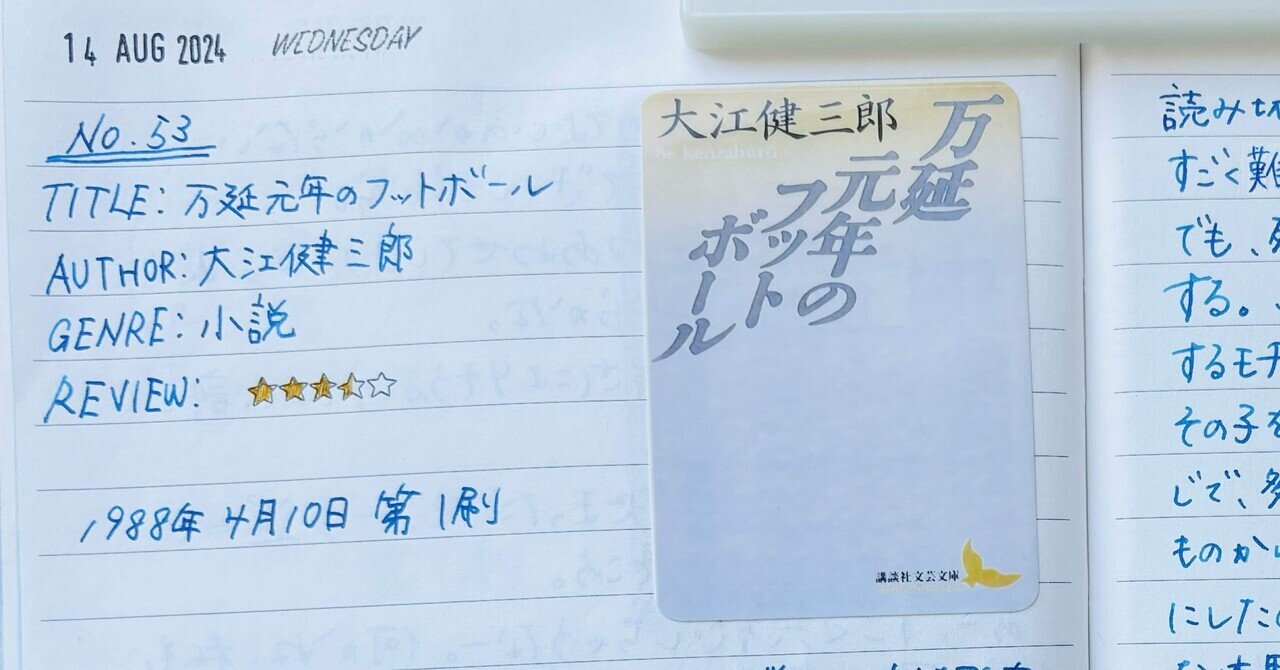 14 AUG 2024 WEDNESDAY
No.53
TITLE: 万延元年のフットボール
AUTHOR: 大江健三郎
GENRE: 小説
REVIEW: ★★★
1988年4月10日 第1刷
大江健三郎
Oe Kenzaburo
万延
元年の
フット
ボール
講談社文芸文庫
読み
すごく難
でも、
する。
するモチ
その子を
じで、
ものか
にした